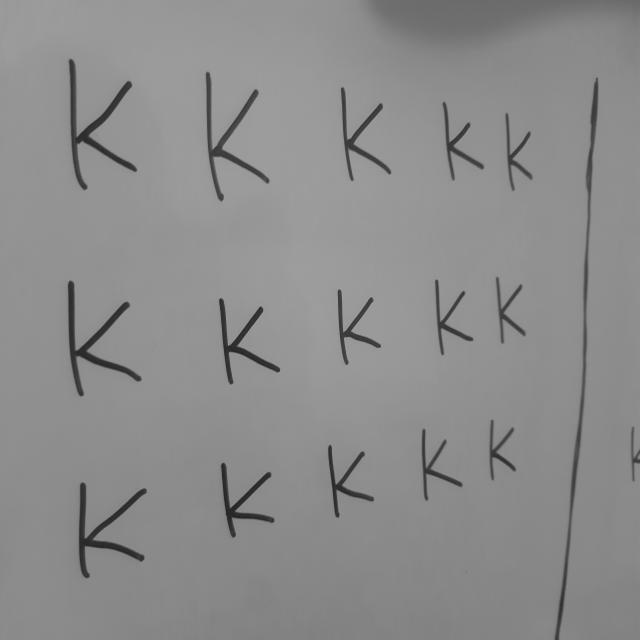 K K K K K
K K K K K
K K K K K